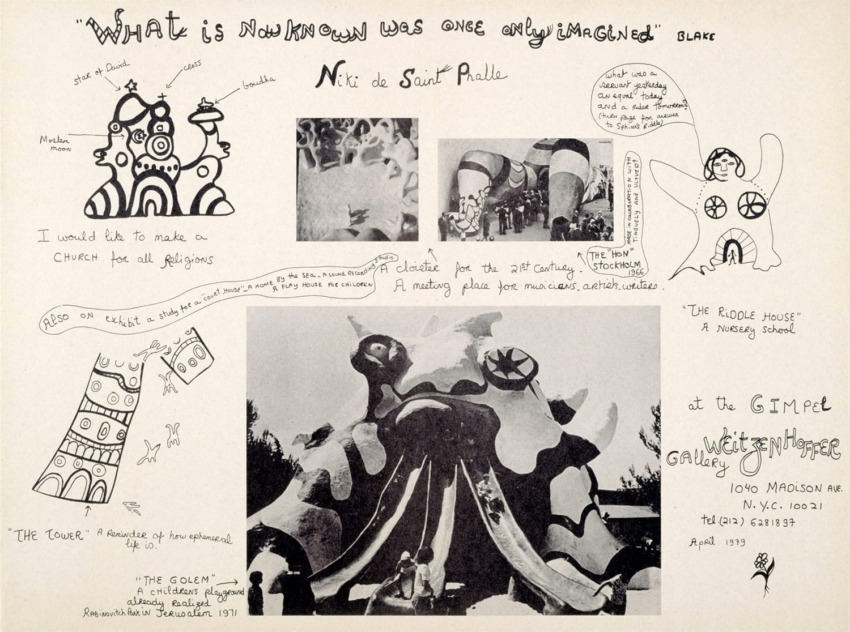 "WHAt is NOW KNOWN WAS ONCE ONLY iMAGiNED" BLAKE
Niki de Saint Phalle
star of David
cross
boudha
Moslem
moon
I would like to make a
CHURCH for all Religions
what was a
servant yesterday
an equal today
and a ruler tomorrow?
(turn page for answer
to Sphinx Riddle)
MADE IN COLLABORATION WITH
TINGUELY AND ULTVEDT
THE "HON"
STOCKHOLM
1966
A cloister for the 21st Century.
A meeting place for musicians, artists, writers.
Also on exhibit a study for a "Court House" - A HOME BY the SEA - A SOUND RECORDING Studio
A PLAY HOUSE FOR CHILDREN
"THE RiDDLE HOUSE"
A NURSERY School
at the GIMPEL
WEitZENHOFFER
GALLERY
1040 MADISON AVE.
N.Y.C. 10021
tel (212) 6281897
April 1979
"THE TOWER" A Reminder of how ephemeral
life is.
"THE GOLEM"
A CHILDRENS playground
already Realized
RABINOVITCH PARK IN JERUSALEM 1971